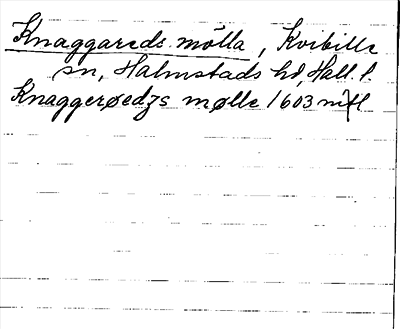 Knaggareds mölla, Kvibille
sn, Halmstads hd, Hall. l.
Knaggerøedzs mølle 1603 mtl